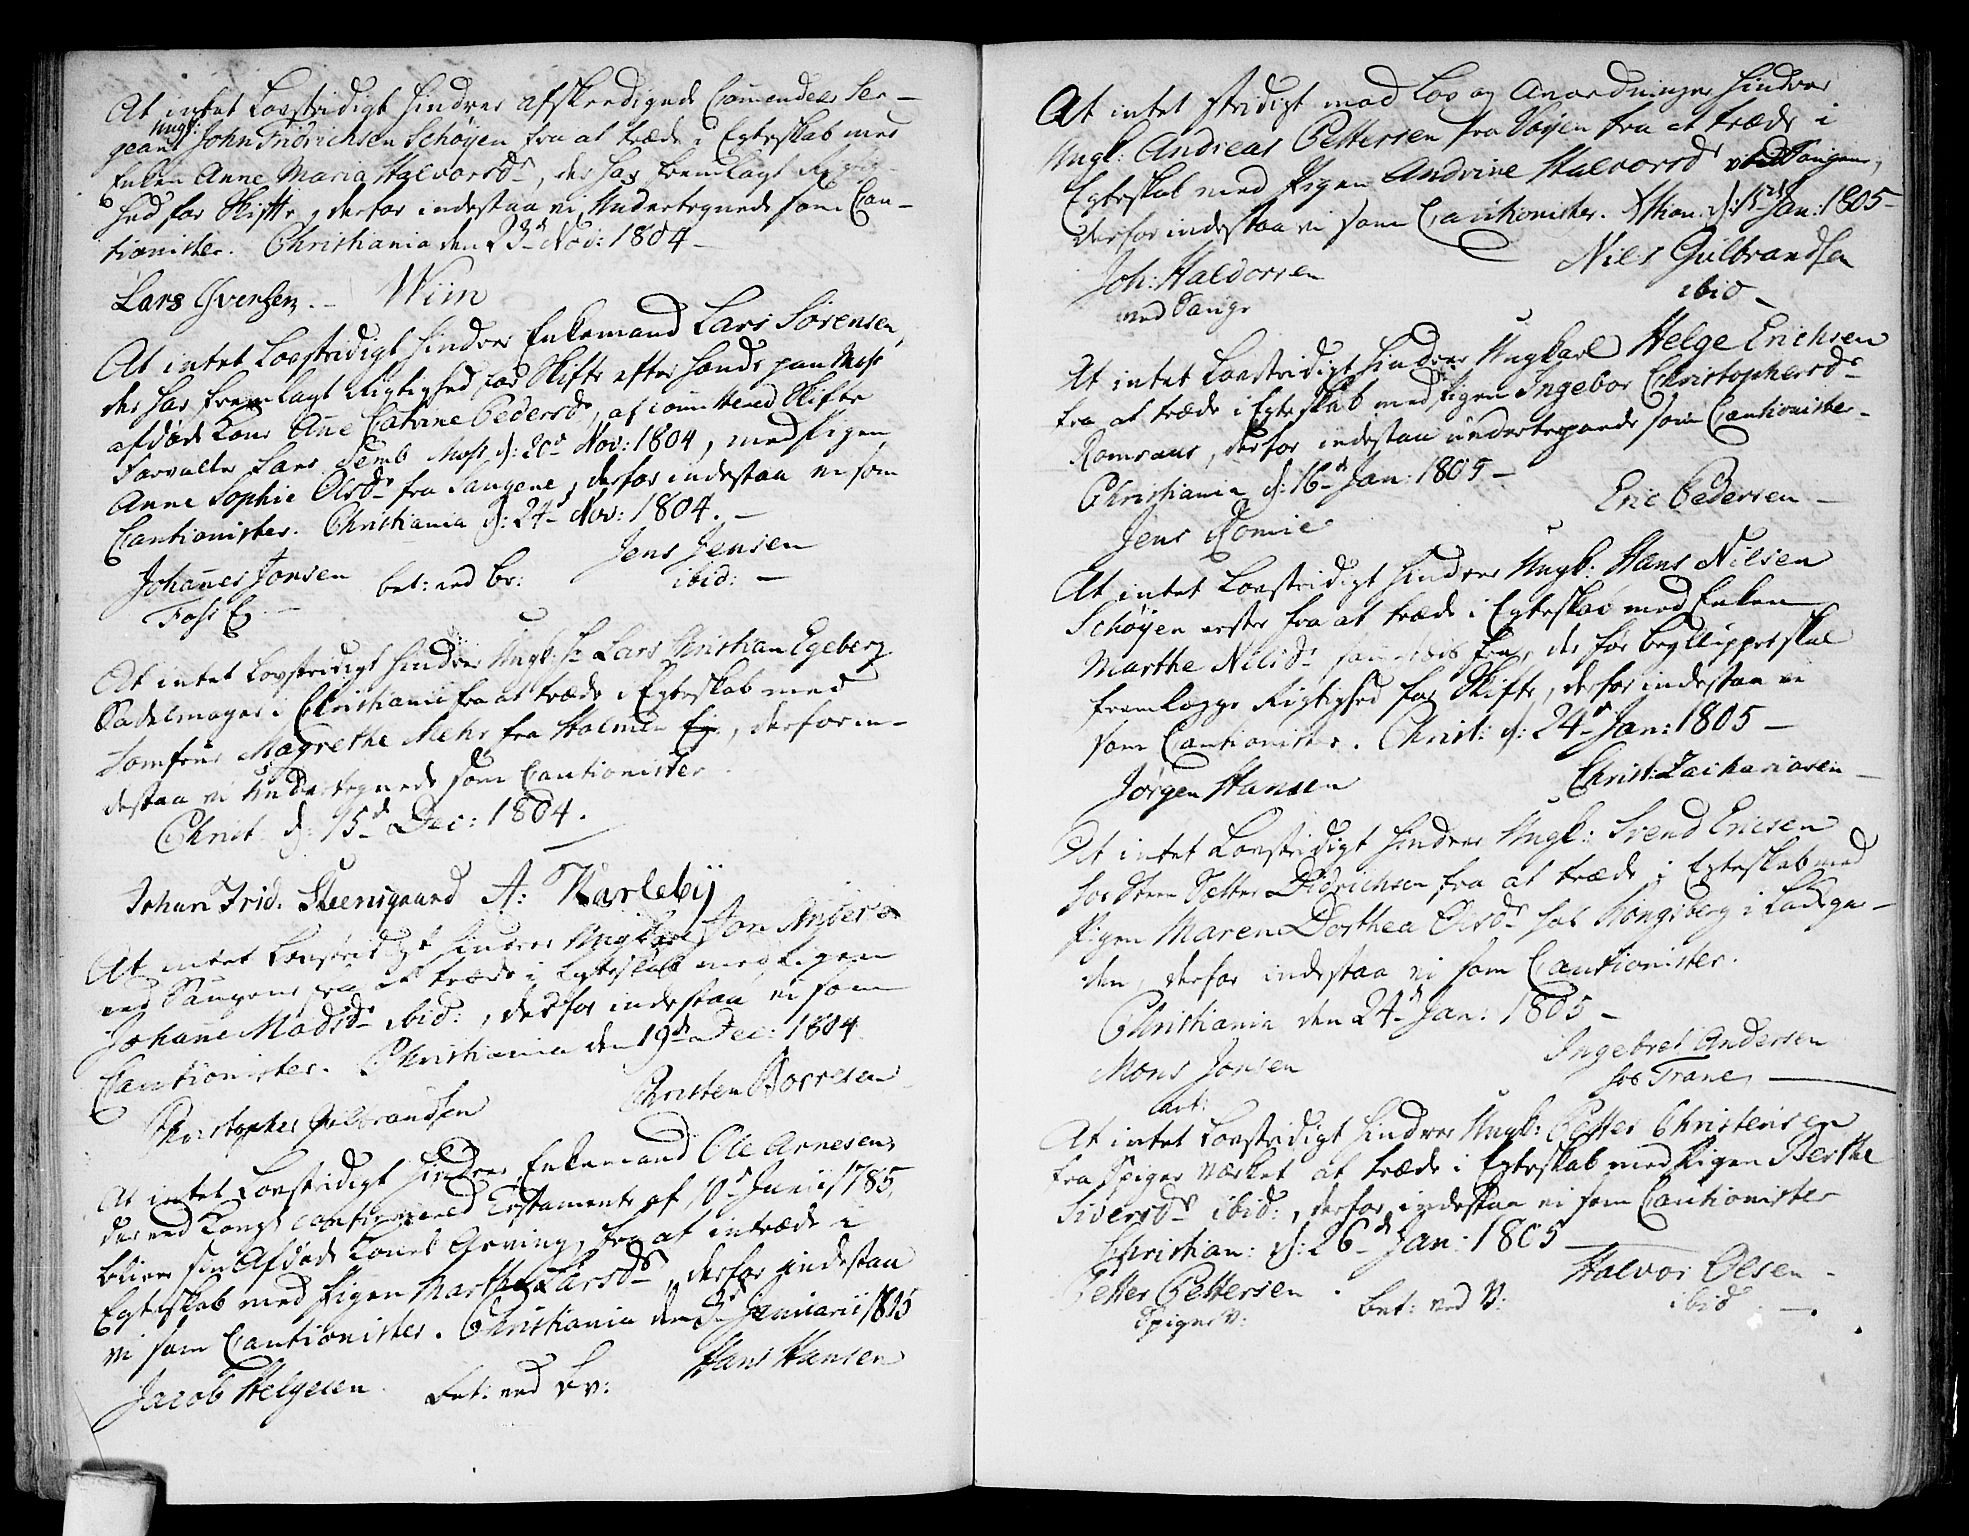 At intet Lovstridigt hindrer afskeedigede Commendeer Ser-
geant Ungk: John Fridrichsen Schøyen fra at træde i Egteskab med
Enken Anne Maria Halvorsdr, der har fremlagt Rigtig-
hed for Skifte, derfor indestaa vi Undertegnede som Cau-
tionister. Christiania den 23de Nov: 1804 -
Lars Iversen. - Wiin
At intet Lovstridigt hindrer Enkemand Lars Sørensen,
der har fremlagt Rigtighed for Skifte efter hands paa Moss
afdøde Kone Ane Catrine Pedersdr, af committered Skifte
Forvalter Lars Semb Moss d: 20de Nov: 1804, med Pigen
Anne Sophie Olsdr fra Saugene, derfor indestaa vi som
Cautionister. Christiania d: 24de Nov: 1804. -
Johannes Jonsen bet: ved Br: Jens Jensen
Foss E. - ibid: -
At intet Lovstridigt hindrer Ungk: Hr Lars Christian Egeberg
Sadelmager i Christiania fra at træde i Egteskab med
Jomfrue Magrethe Mehr fra Holmen, derfor in-
destaa vi Undertegnede som Cautionister.
Christ. d: 15de Dec: 1804.
Johan Frid. Steensgaard A: Karleby
At intet Lovstridigt hindrer Ungkarl Jon Andersen
ved Saugene fra at træde i Egteskab med Pigen
Johanne Madsdr ibid:, derfor indestaa vi som
Cautionister. Christiania den 19de Dec: 1804
Christopher Gulbrandsen Christen Borresen
At intet Lovstridigt hindrer Enkemand Ole Arnesen,
der ved Kongl confirmered Testamente af 10de Junii 1785,
bliver sin Afdøde Kones Arving, fra at intræde i
Egteskab med Pigen Marthe Larsdr, derfor indestaa
vi som Cautionister. Christiania den 3de Januarii 1805
Jacob Helgesen bet: ved Br: Hans Hansen
At intet stridigt mod Lov og Anordninger hindrer
Ungk: Andreas Pettersen fra Vøyen fra at træde i
Egteskab med Pigen Andrine Halvorsdr ved Saugene,
derfor indestaa vi som Cautionister. Xtian: d: 12de Jan: 1805 -
Joh: Haldorsen Niels Gulbrandsen
ved Sauge ibid -
At intet Lovstridigt hindrer Ungkarl Helge Erichsen
fra at træde i Egteskab med Pigen Ingebor Christophersdr
Romsaas, derfor indestaa undertegnede som Cautionister -
Christiania d: 16de Jan: 1805 -
Jens Tomie Eric Pedersen -
At intet Lovstridigt hindrer Ungk: Hans Nilsen
Schøyen fra at træde i Egteskab med Enken
Marthe Nilsdr, der før Brylluppet skal
fremlægge Rigtighed for Skifte, derfor indestaa vi
som Cautionister. Christ: d: 24de Jan: 1805 -
Jørgen Hansen Christ: Zachariasen -
At intet Lovstridigt hindrer Ungk: Svend Ericsen
hos Herr Petter Didrichsen fra at træde i Egteskab med
Pigen Maren Dorthea Olsdr hos Kongsberg i Ladega-
den, derfor indestaa vi som Cautionister.
Christiania den 24de Jan: 1805 -
Mons Jonsen Ingebret Andersen
hos Trane, -
At intet Lovstridigt hindrer Ungk: Petter Christensen
fra Spiger værket at træde i Egteskab med Pigen Berthe
Siversdr ibid:, derfor indestaa vi som Cautionister
Christian: d: 26de Jan: 1805 -
Petter Pettersen. bet: ved B: Halvor Olsen -
Spiger V: ibid. -.